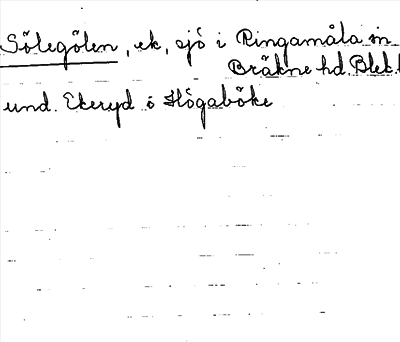 Sölegölen, ek, sjö i Ringamåla sn
Bräkne hd. Blek.
und. Ekeryd o Högaböke